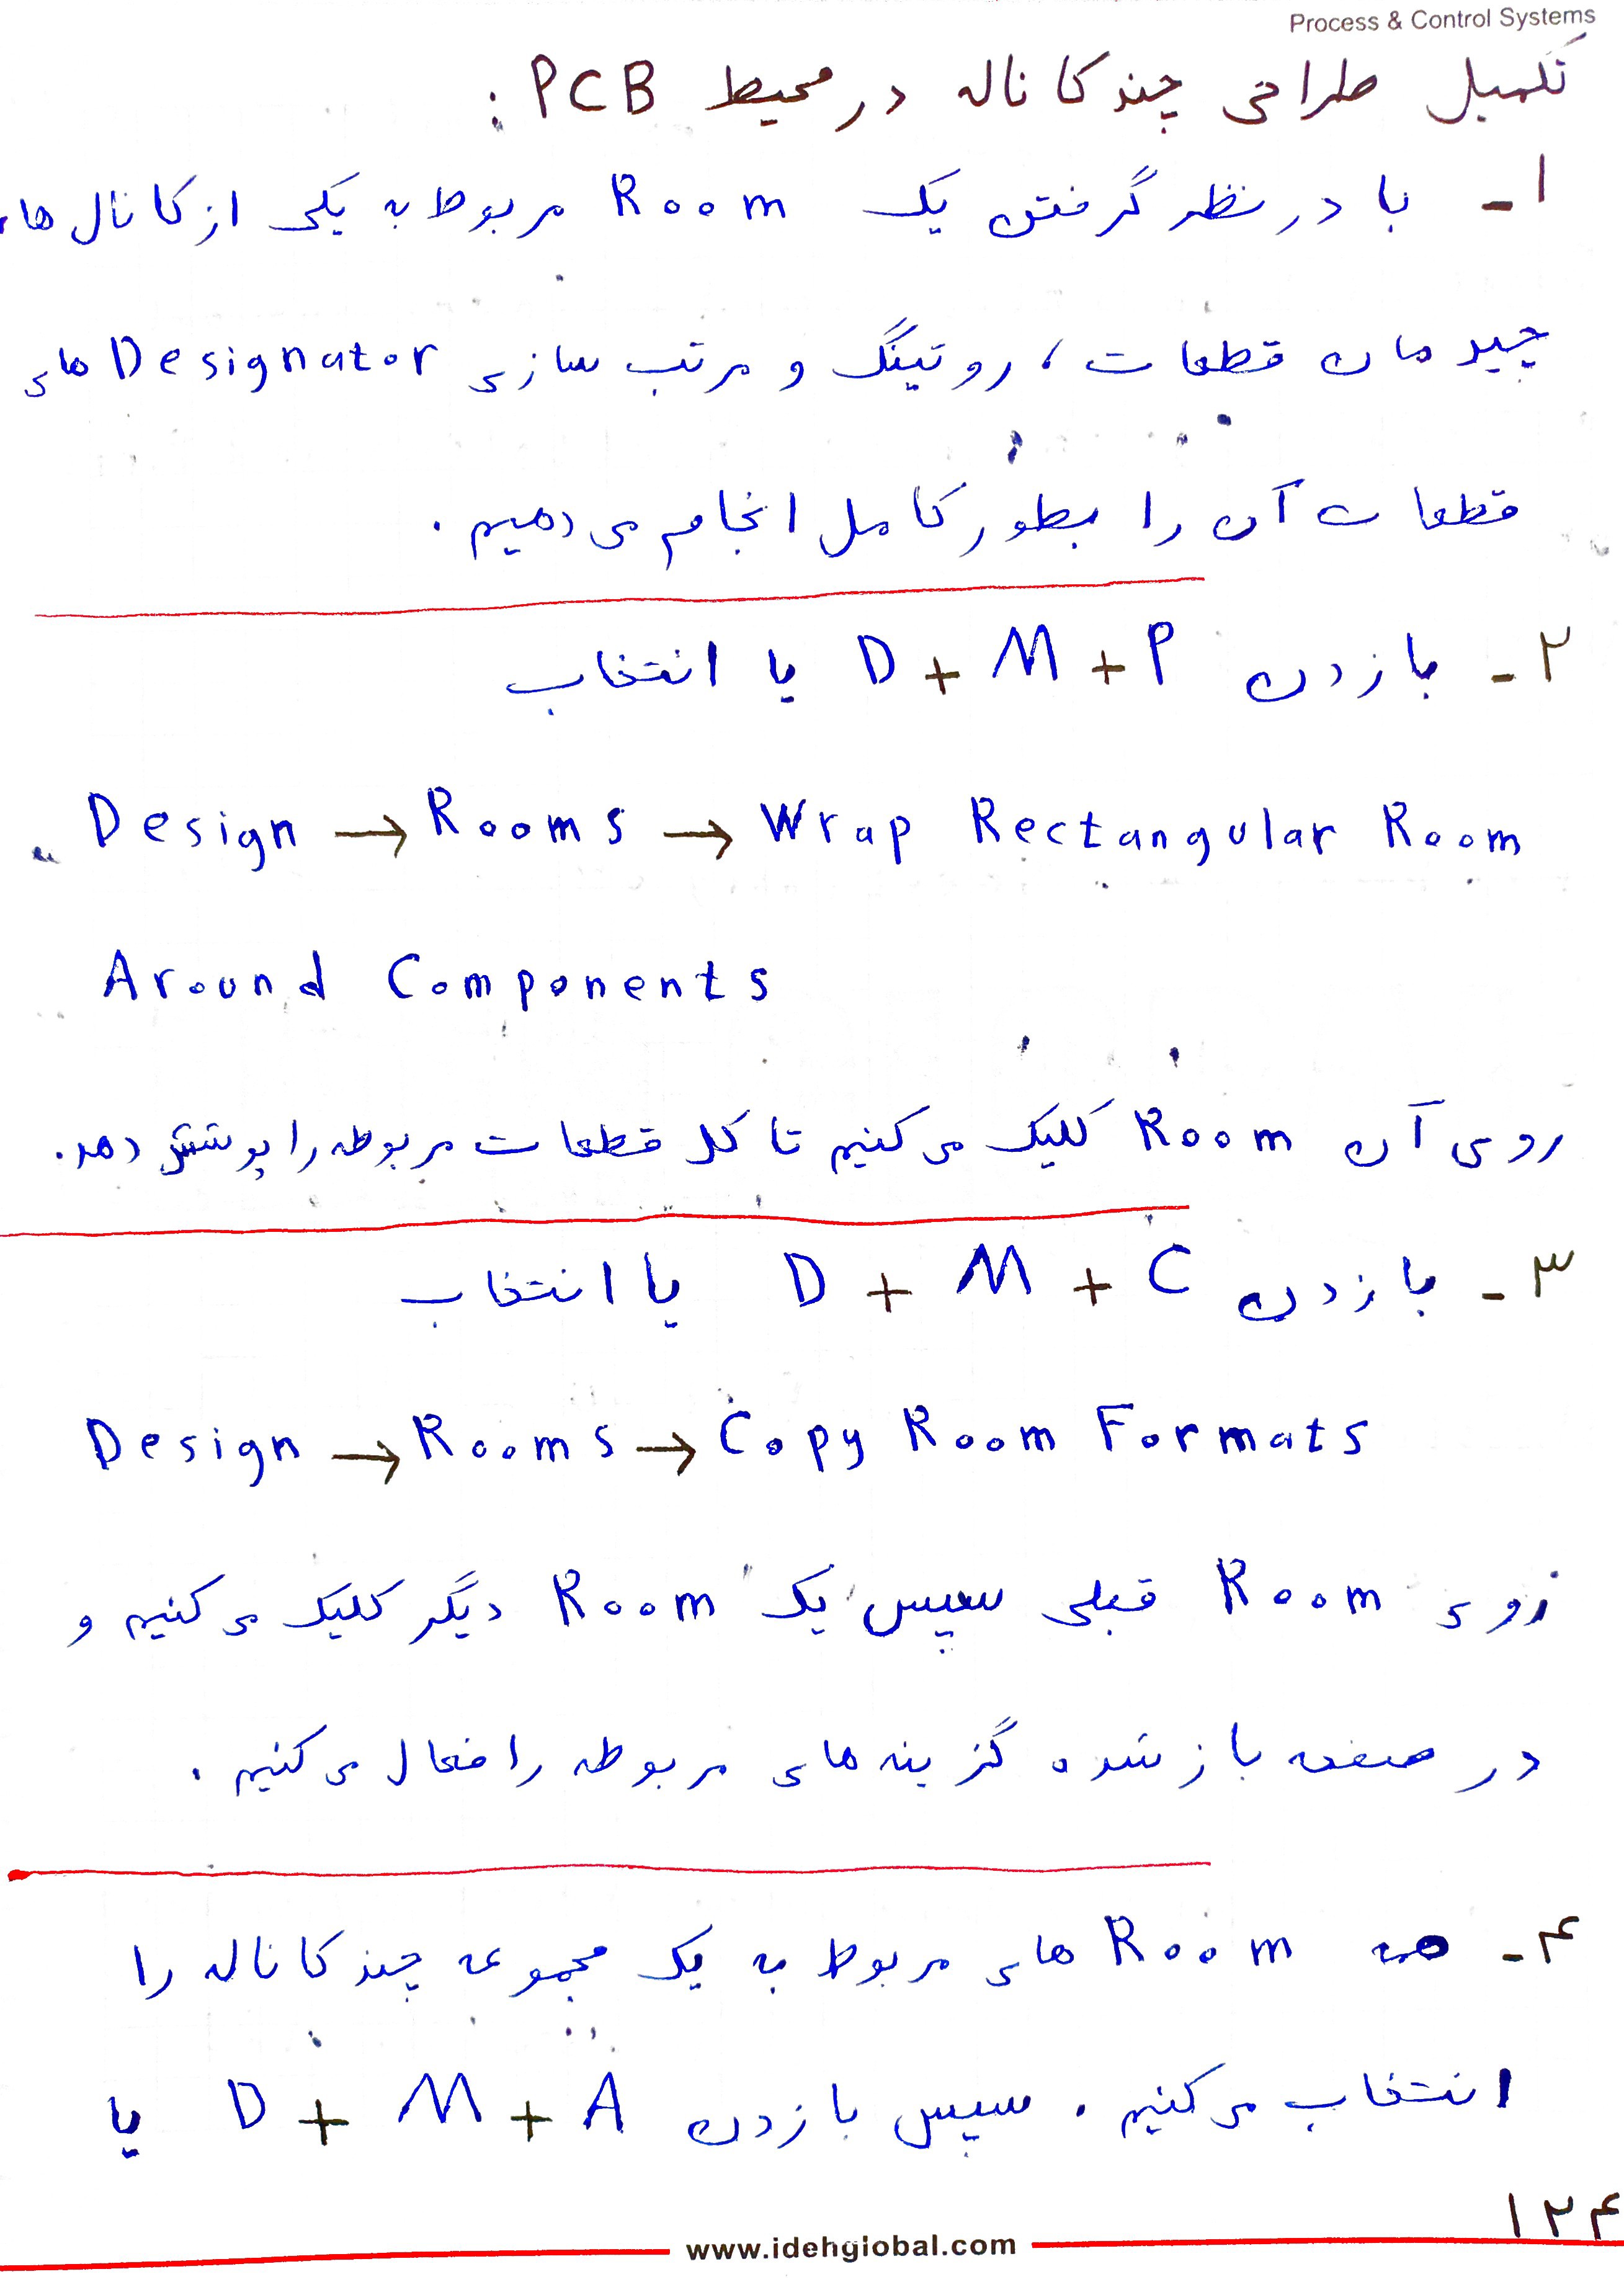 Process & Control Systems
تکمیل طراحی چندکاناله در محیط PCB :
۱- با در نظر گرفتن یک Room مربوط به یکی از کانال ها،
چیدمان قطعات، روتینگ و مرتب سازی Designator های
قطعات آن را بطور کامل انجام می دهیم.
۲- با زدن D + M + P یا انتخاب
Design → Rooms → Wrap Rectangular Room
Around Components
روی آن Room کلیک می کنیم تا کل قطعات مربوطه را پوشش دهد.
۳- با زدن D + M + C یا انتخاب
Design → Rooms → Copy Room Formats
روی Room قبلی سپس یک Room دیگر کلیک می کنیم و
در صفحه باز شده گزینه های مربوطه را فعال می کنیم.
۴- همه Room های مربوط به یک مجموعه چندکاناله را
انتخاب می کنیم. سپس با زدن D + M + A یا
۱۲۴
www.idehglobal.com